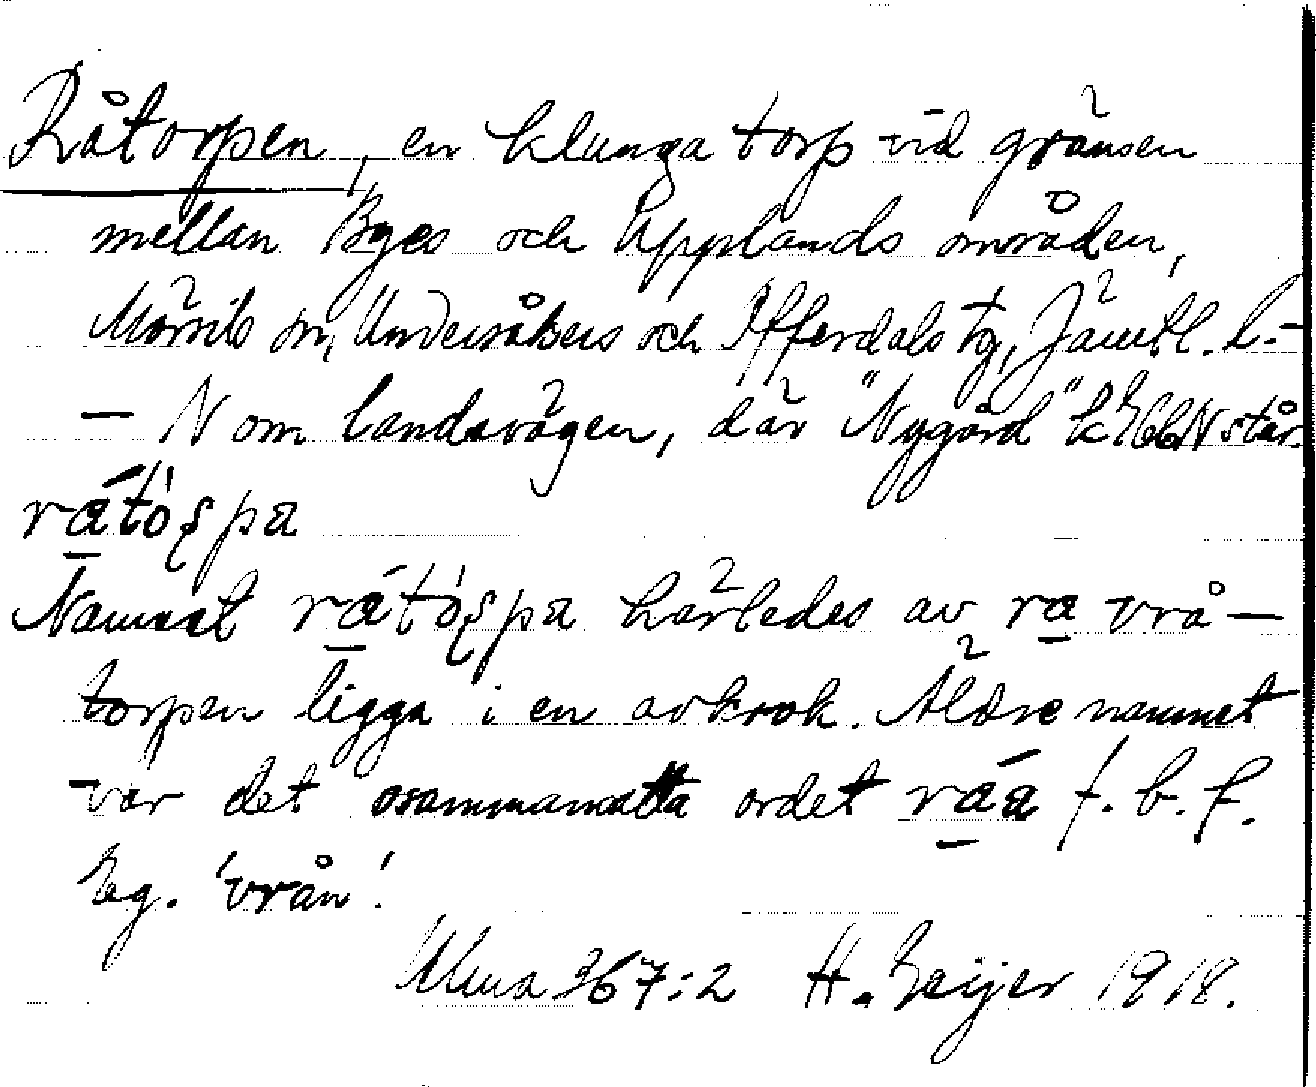 Råtorpen, en klunga torp vid gränsen
mellan Byes och Upplands områden,
Mörsils sn, Undersåkers och Offerdals tg, Jämtl. l.–
– N om landsvägen, där "Nygård" k S66N står.
rátórpa
Namnet rátórpa härledes av ra vrå –
torpen ligga i en avkrok. Äldre namnet
var det osammansatta ordet ráa f. b. f.
Eg. 'vrån'.
Ulma 367:2 H. Geijer 1918.